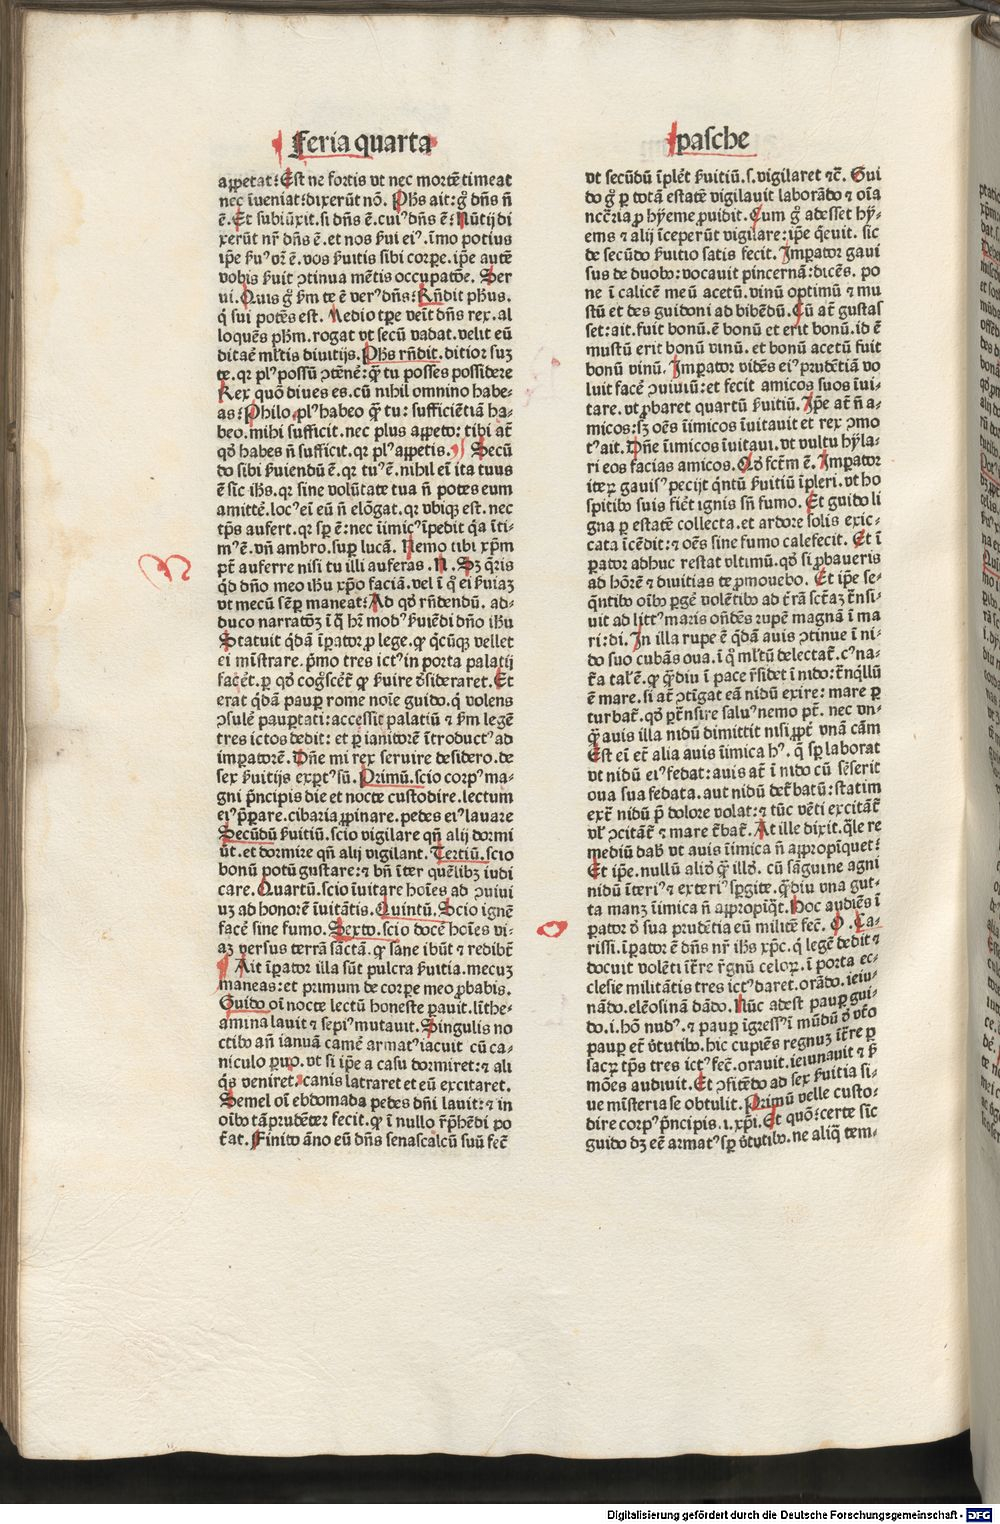 Feria quarta
appetat: Est ne fortis vt nec mortē timeat
nec īveniat: dixerūt nō. Phs̄ ait: g̊ dn̄s n̄
ē. Et subiūxit. si dn̄s ē. cuiꝰ dn̄s ē: Nūtij di
xerūt nr̄ dn̄s ē. et nos ẜui eiꝰ. īmo potius
ip̄e ẜuꝰ vr̄ ē. vos ẜuitis sibi corꝑe. ip̄e autē
vobis ẜuit ꝯtinua mētis occupatōe. Ser
ui. Quis g̊ ẜm te ē verꝰ dn̄s: Rn̄dit phūs.
q̄ sui potēs est. Medio tꝑe venīt dn̄s rex. al
loquēs phm̄. rogat vt secū vadat. velit eū
ditaē ml̄tis diuitijs. Phs̄ rn̄dit. ditior suꝫ
te. qꝛ plꝰ possū ꝯtēnē: q̄ꝫ tu posses possidere
Rex quō diues es. cū nihil omnino habe-
as: Philo. plꝰ habeo q̄ꝫ tu: sufficiētiā ha-
beo. mihi sufficit. nec plus appeto: tibi at̄
qd̄ habes n̄ sufficit. qꝛ plꝰ appetis. Secū
do sibi ẜuiendū ē. qꝛ tuꝰ ē. nihil eī ita tuus
ē sīc ihs̄. qꝛ sine volūtate tua n̄ potes eum
amittē. locꝰ eī eū n̄ elōgat. qꝛ vbiqꝫ est. nec
tp̄s aufert. qꝛ sꝑ ē: nec īimicꝰ īpedit q̄a īti-
mꝰ ē. vn̄ ambro. suꝑ lucā. Nemo tibi xp̄m
pt̄ auferre nisi tu illi auferas. N. Sꝫ q̄ris
q̄d dn̄o meo ihū xp̄o faciā. vel ī q̄ ei ẜuiaꝫ
vt mecū sēꝑ maneat: Ad qd̄ rn̄dendū. ad-
duco narratōꝫ ī q̄ hr̄ modꝰ ẜuiēdi dn̄o ihū
Statuit q̄dā īꝑator ꝓ lege. ꝙ q̄cūqꝫ vellet
ei mīstrare. p̄mo tres ictꝰ in porta palatij
facēt. ꝑ qd̄ cog̊scēt̄ ꝙ ẜuire ꝯsideraret. Et
erat q̄dā pauꝑ rome noīe guido. q̄ volens
ꝯsulē pauꝑtati: accessit palatiū ⁊ ẜm legē
tres ictos dedit: et ꝑ ianitorē ītroductꝰ ad
imperatorē. Dn̄e mi rex seruire desidero. de
sex ẜuitijs exꝑtꝰ sū. Primū. scio corpꝰ ma-
gni p̄ncipis die et nocte custodire. lectum
eiꝰ p̄ꝑare. cibaria ꝓpinare. pedes eiꝰ lauare
Secūdū ẜuitiū. scio vigilare qn̄ alij dormi
ūt. et dormire qn̄ alij vigilant. Tertiū. scio
bonū potū gustare: ⁊ bn̄ īter quēlibꝫ iudi
care. Quartū. scio īuitare hoīes ad ꝯuiui
uꝫ ad honorē īuitātis. Quintū. Scio ignē
facē sine fumo. Sexto. scio docē hoīes vi-
aꝫ versus terrā sāctā. ꝙ sane ibūt ⁊ redibt̄
Ait īꝑator illa sūt pulcra ẜuitia. mecuꝫ
maneas: et primum de corꝑe meo ꝓbabis.
Guido oī nocte lectū honeste ꝑauit. līthe-
amina lauit ⁊ sepiꝰ mutauit. Singulis no
ctibꝰ an̄ ianuā camē armatꝰ iacuit cū ca-
niculo ꝑuo. vt si ip̄e a casu dormiret: ⁊ ali
q̄s veniret. canis latraret et eū excitaret.
Semel oī ebdomada pedes dn̄i lauit: ⁊ in
oībꝰ tā prudēter fecit. ꝙ ī nullo rp̄hēdi po
t̄at. Finito āno eū dn̄s senascalcū suū fec̄
pasche
vt secūdū īplēt ẜuitiū. s. vigilaret ⁊c̄. Gui
do g̊ ꝑ totā estatē vigilauit laborādo ⁊ oīa
nccr̄ia ꝓ hyeme ꝓuidit. Cum g̊ adesset hy-
ems ⁊ alij īceperūt vigilare: ip̄e q̄euit. sic
de secūdo ẜuitio satis fecit. Imꝑator gaui
sus de duobꝰ: vocauit pincernā: dicēs. po
ne ī calicē meū acetū. vinū optimū ⁊ mu
stū et des guidoni ad bibēdū. Cū at̄ gustas
set: ait. fuit bonū. ē bonū et erit bonū. id ē
mustū erit bonū vinū. et bonū acetū fuit
bonū vinū. Imꝑator vidēs eiꝰ prudētiā vo
luit facē ꝯuiuiū: et fecit amicos suos īui-
tare. vt ꝓbaret quartū ẜuitiū. Ip̄e at̄ n̄ a-
micos: sꝫ oēs īimicos īuitauit et rex ꝯmo
tꝰ ait. Dn̄e īimicos īuitaui. vt vultu hyla-
ri eos facias amicos. Qd̄ fctm̄ ē. Imꝑator
iteꝝ gauisꝰ pecijt q̄ntū ẜuitiū īpleri. vt ho
spitibꝰ suis fiēt ignis sn̄ fumo. Et guido li
gna ꝑ estatē collecta. et ardore solis exic-
cata īcēdit: ⁊ oēs sine fumo calefecit. Et ī
ꝑator adhuc restat vltimū. qd̄ si ꝓbaueris
ad honorē ⁊ diuitias te ꝓmouebo. Et ip̄e se-
q̄ntibꝰ oībꝰ ꝑgē volētibꝰ ad t̄rā sctāꝫ trāsi-
uit ad littꝰ maris ondēs rupē magnā ī ma
ri: di. In illa rupe ē q̄dā auis ꝯtinue ī ni-
do suo cubās oua. ī q̄ ml̄tū delectat̄. cꝰ na-
t̄a tal̄ ē. ꝙ q̄ꝫdiu ī pace r̄sidet ī nido: t̄nq̄llū
ē mare. si at̄ ꝯtīgat eā nidū exire: mare ꝑ
turbat̄. qd̄ ꝑt̄nsire saluꝰ nemo pt̄. nec vn-
q̄ꝫ auis illa nidū dimittit nisi ꝓpt̄ vnā cām
Est eī et̄ alia auis īimica hꝰ. q̄ sꝑ laborat
vt nidū eiꝰ fedat: auis at̄ ī nido cū sēserit
oua sua fedata. aut nidū det̄batū: statim
ext̄ nidū p̄ dolore volat: ⁊ tūc vēti excitāt̄
vl̄ ꝯcitāt̄ ⁊ mare t̄bat̄. At ille dixit. q̄le re
mediū dabꝰ vt auis īimica n̄ appropīquet:
Et ip̄e. nullū aliō q̄ꝫ illō. cū sāguine agni
nidū īteriꝰ ⁊ exteriꝰ spgite. q̄ꝫdiu vna gut-
ta manꝫ īimica n̄ appropīq̄t. Hoc audiēs ī
ꝑator ꝯ̄ sua prudētia eū militē fec̄. O. Ca-
rissi. īꝑator ē dn̄s nr̄ ihs̄ xp̄c. q̄ legē dedit ⁊
docuit volēti īt̄re r̄gnū celoꝝ. ī porta ec-
clesie militātis tres ictꝰ daret. orādo. ieiu-
nādo. elēosinā dādo. Nūc adest pauꝑ gui-
do. i. hō nudꝰ. ⁊ pauꝑ īgressꝰ ī mūdū
pauꝑ et̄ v̄tutibꝰ. hic cupiēs regnuꝫ īt̄re ꝑ
sacꝝ tp̄s tres ictꝰ fec̄. orauit. ieiunauit ⁊ ẜ
mōes audiuit. Et ꝯfitēdo ad sex ẜuitia si-
ue mīsteria se obtulit. Primū velle custo-
dire corpꝰ p̄ncipis. i. xp̄i. Et quō: certe sīc
guido dꝫ eē armatꝰ sꝑ v̄tutibꝰ. ne aliq̄ tem-
Digitalisierung gefördert durch die Deutsche Forschungsgemeinschaft - DFG